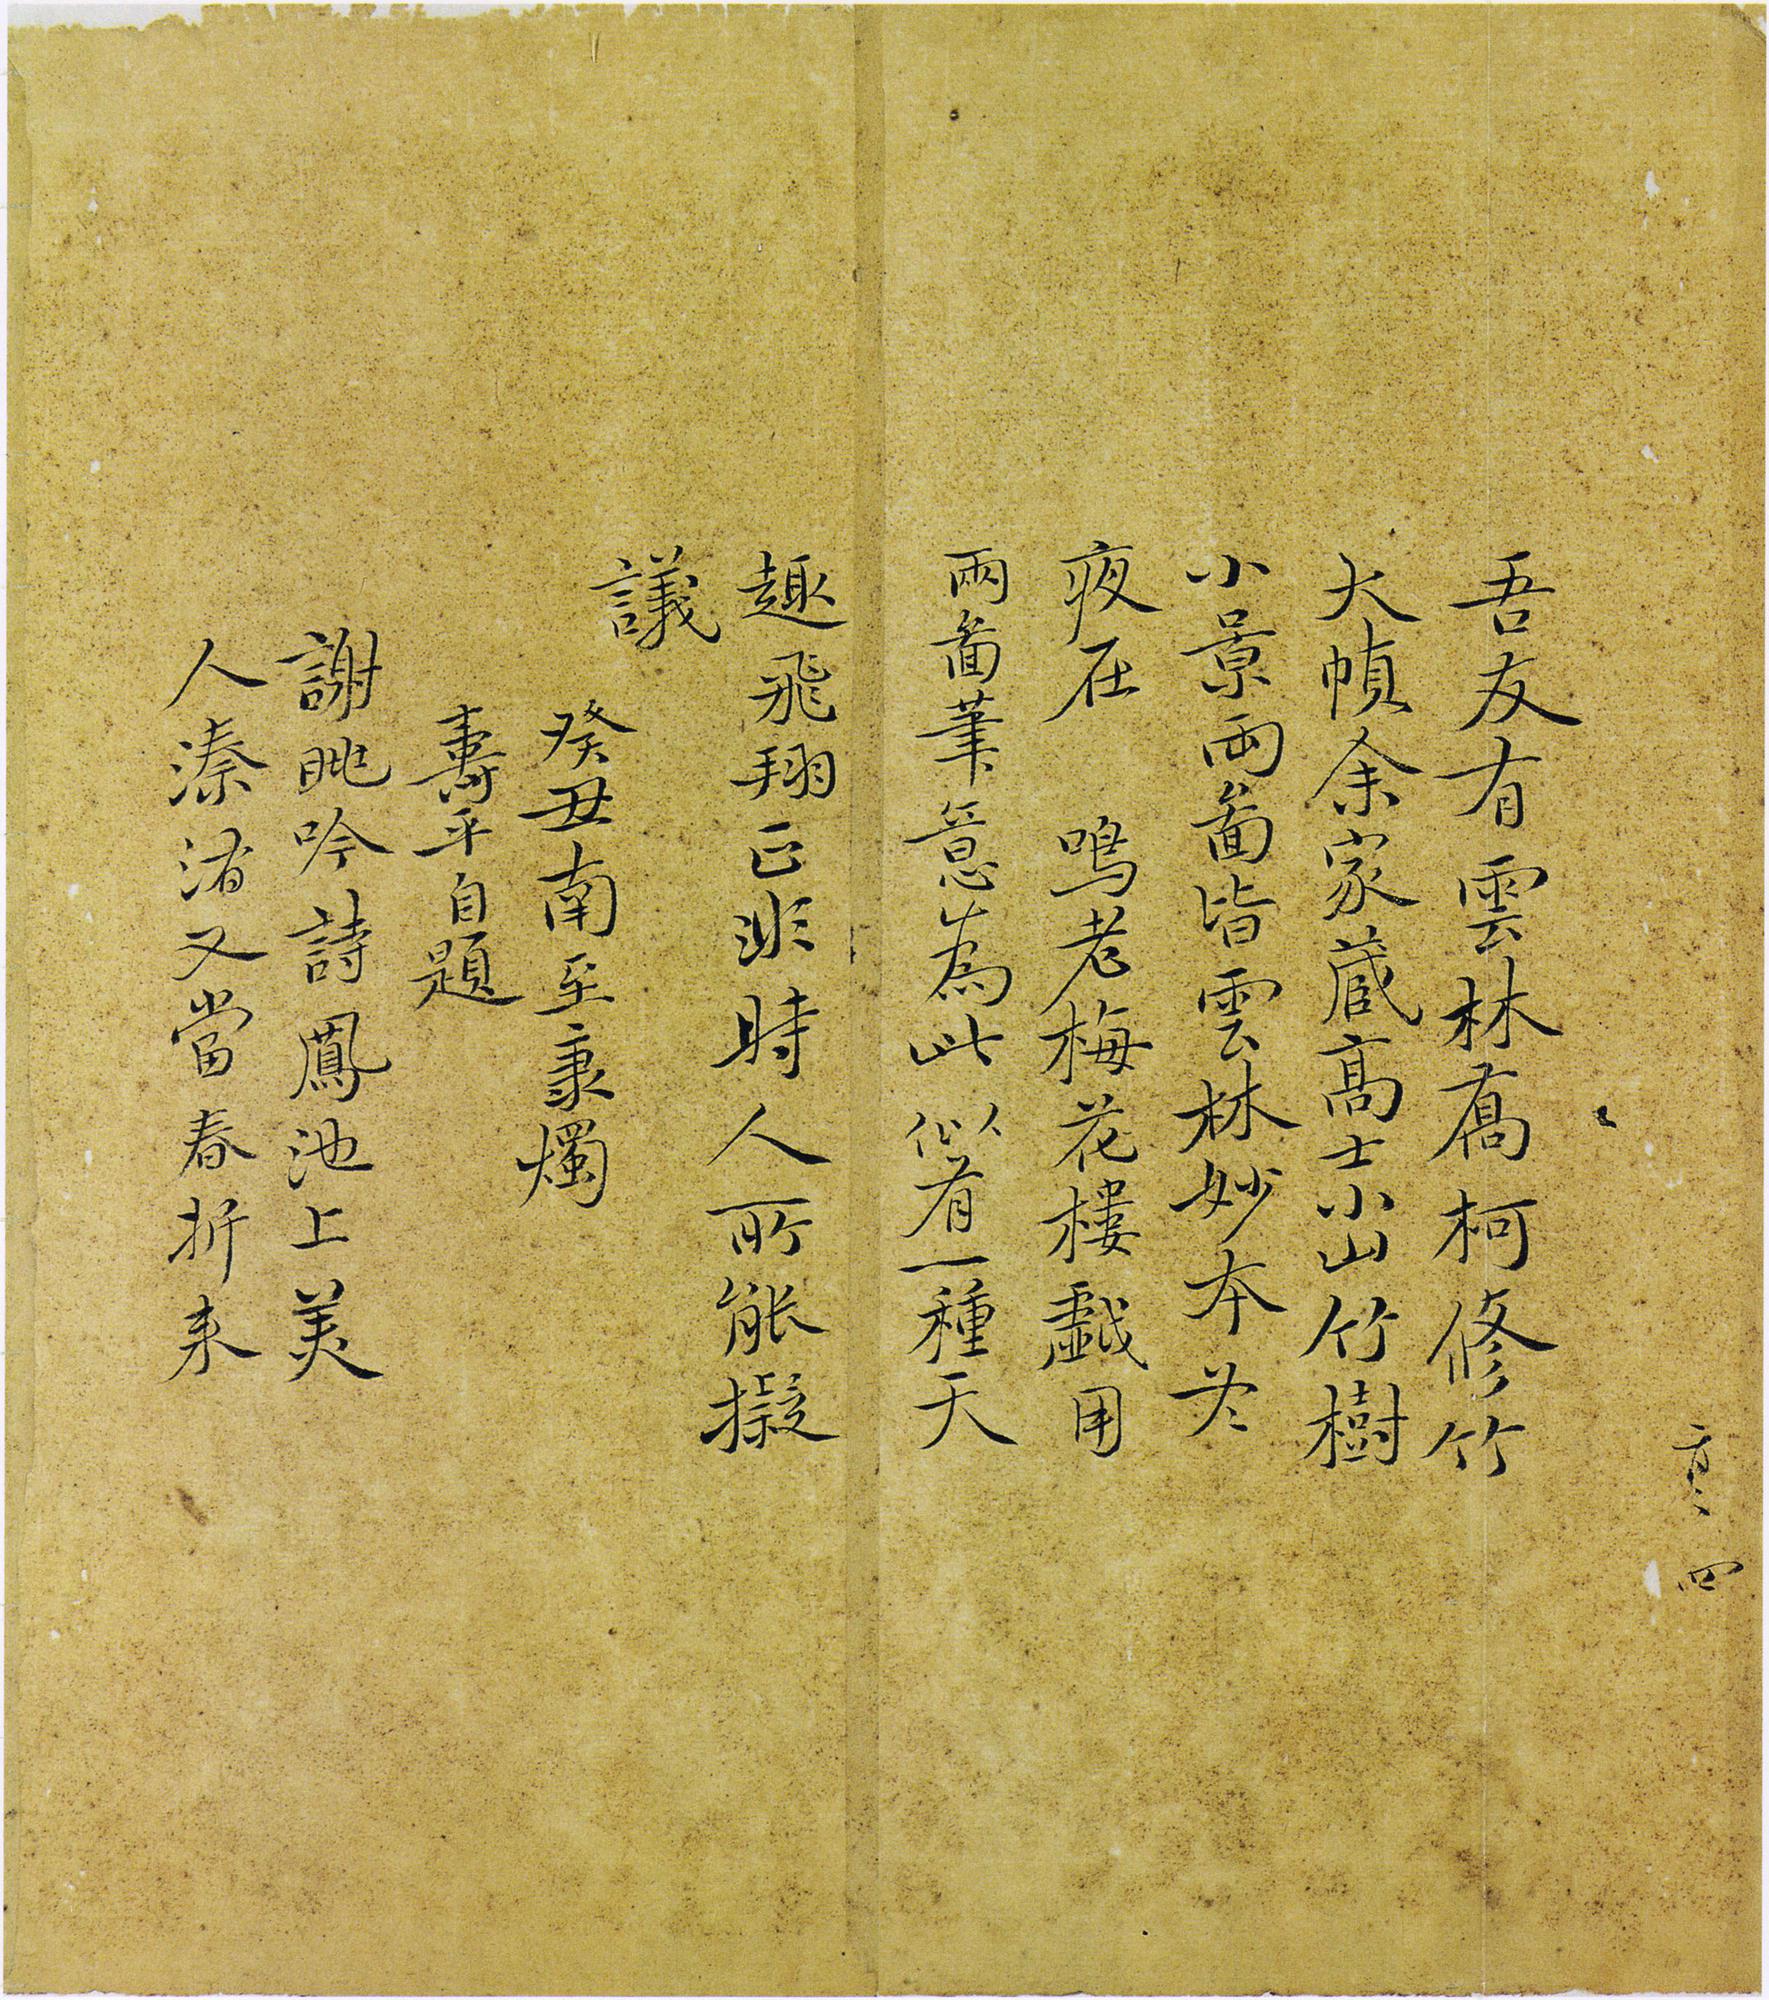 吾友有雲林喬柯修竹
大幀余家藏高士小山竹樹
小景兩啚皆雲林妙本冬
夜在 鳴老梅花樓戲用
兩啚筆意為此似有一種天
趣飛翔正非時人所能擬
議
癸丑南至秉燭
壽平自題
謝眺吟詩鳳池上美
人溱洧又當春折来
四